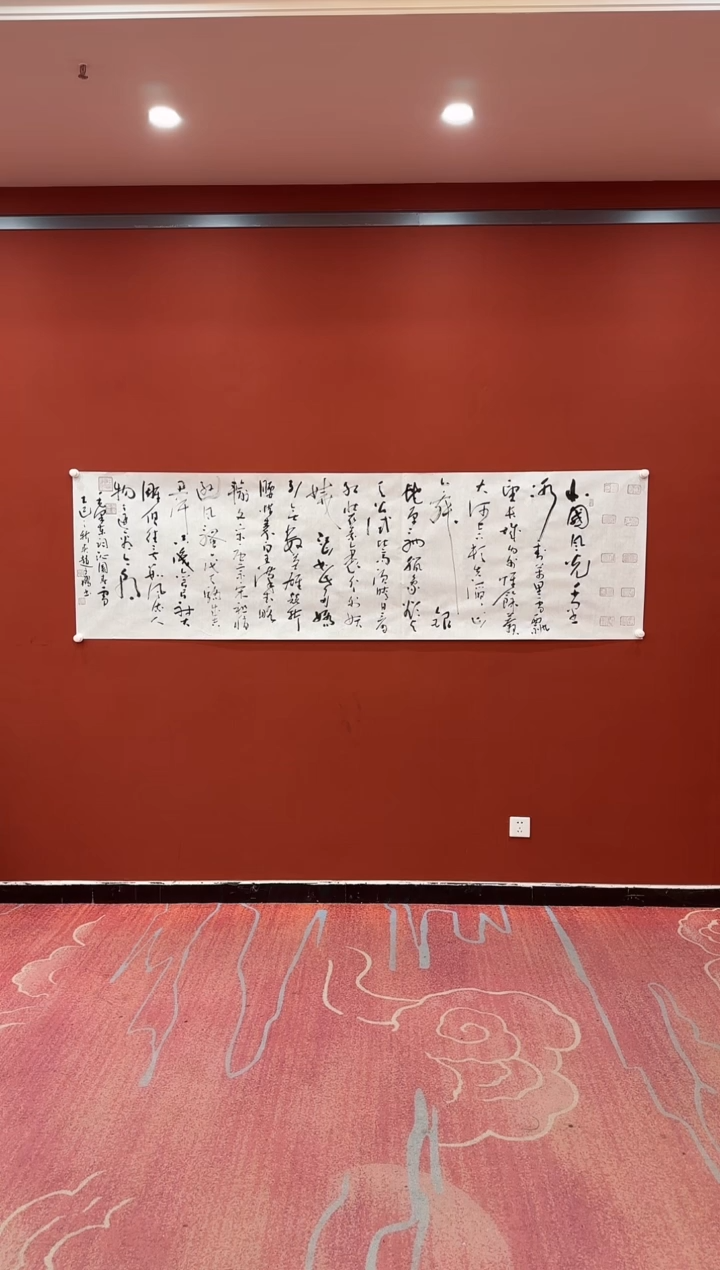 北國風光千里
冰封萬里雪飄
望长城内外惟餘莽
大河上下顿失滔滔山
舞银
蛇原驰蜡象欲与
天公试比高须晴日看
红装素裹分外妖
娆江山如此多娇
引无数英雄竞折
腰惜秦皇汉武略
输文采唐宗宋祖稍
逊风骚一代天骄成吉
思汗只识弯弓射大
雕俱往矣数风流人
物还看今朝
毛泽东词沁园春雪